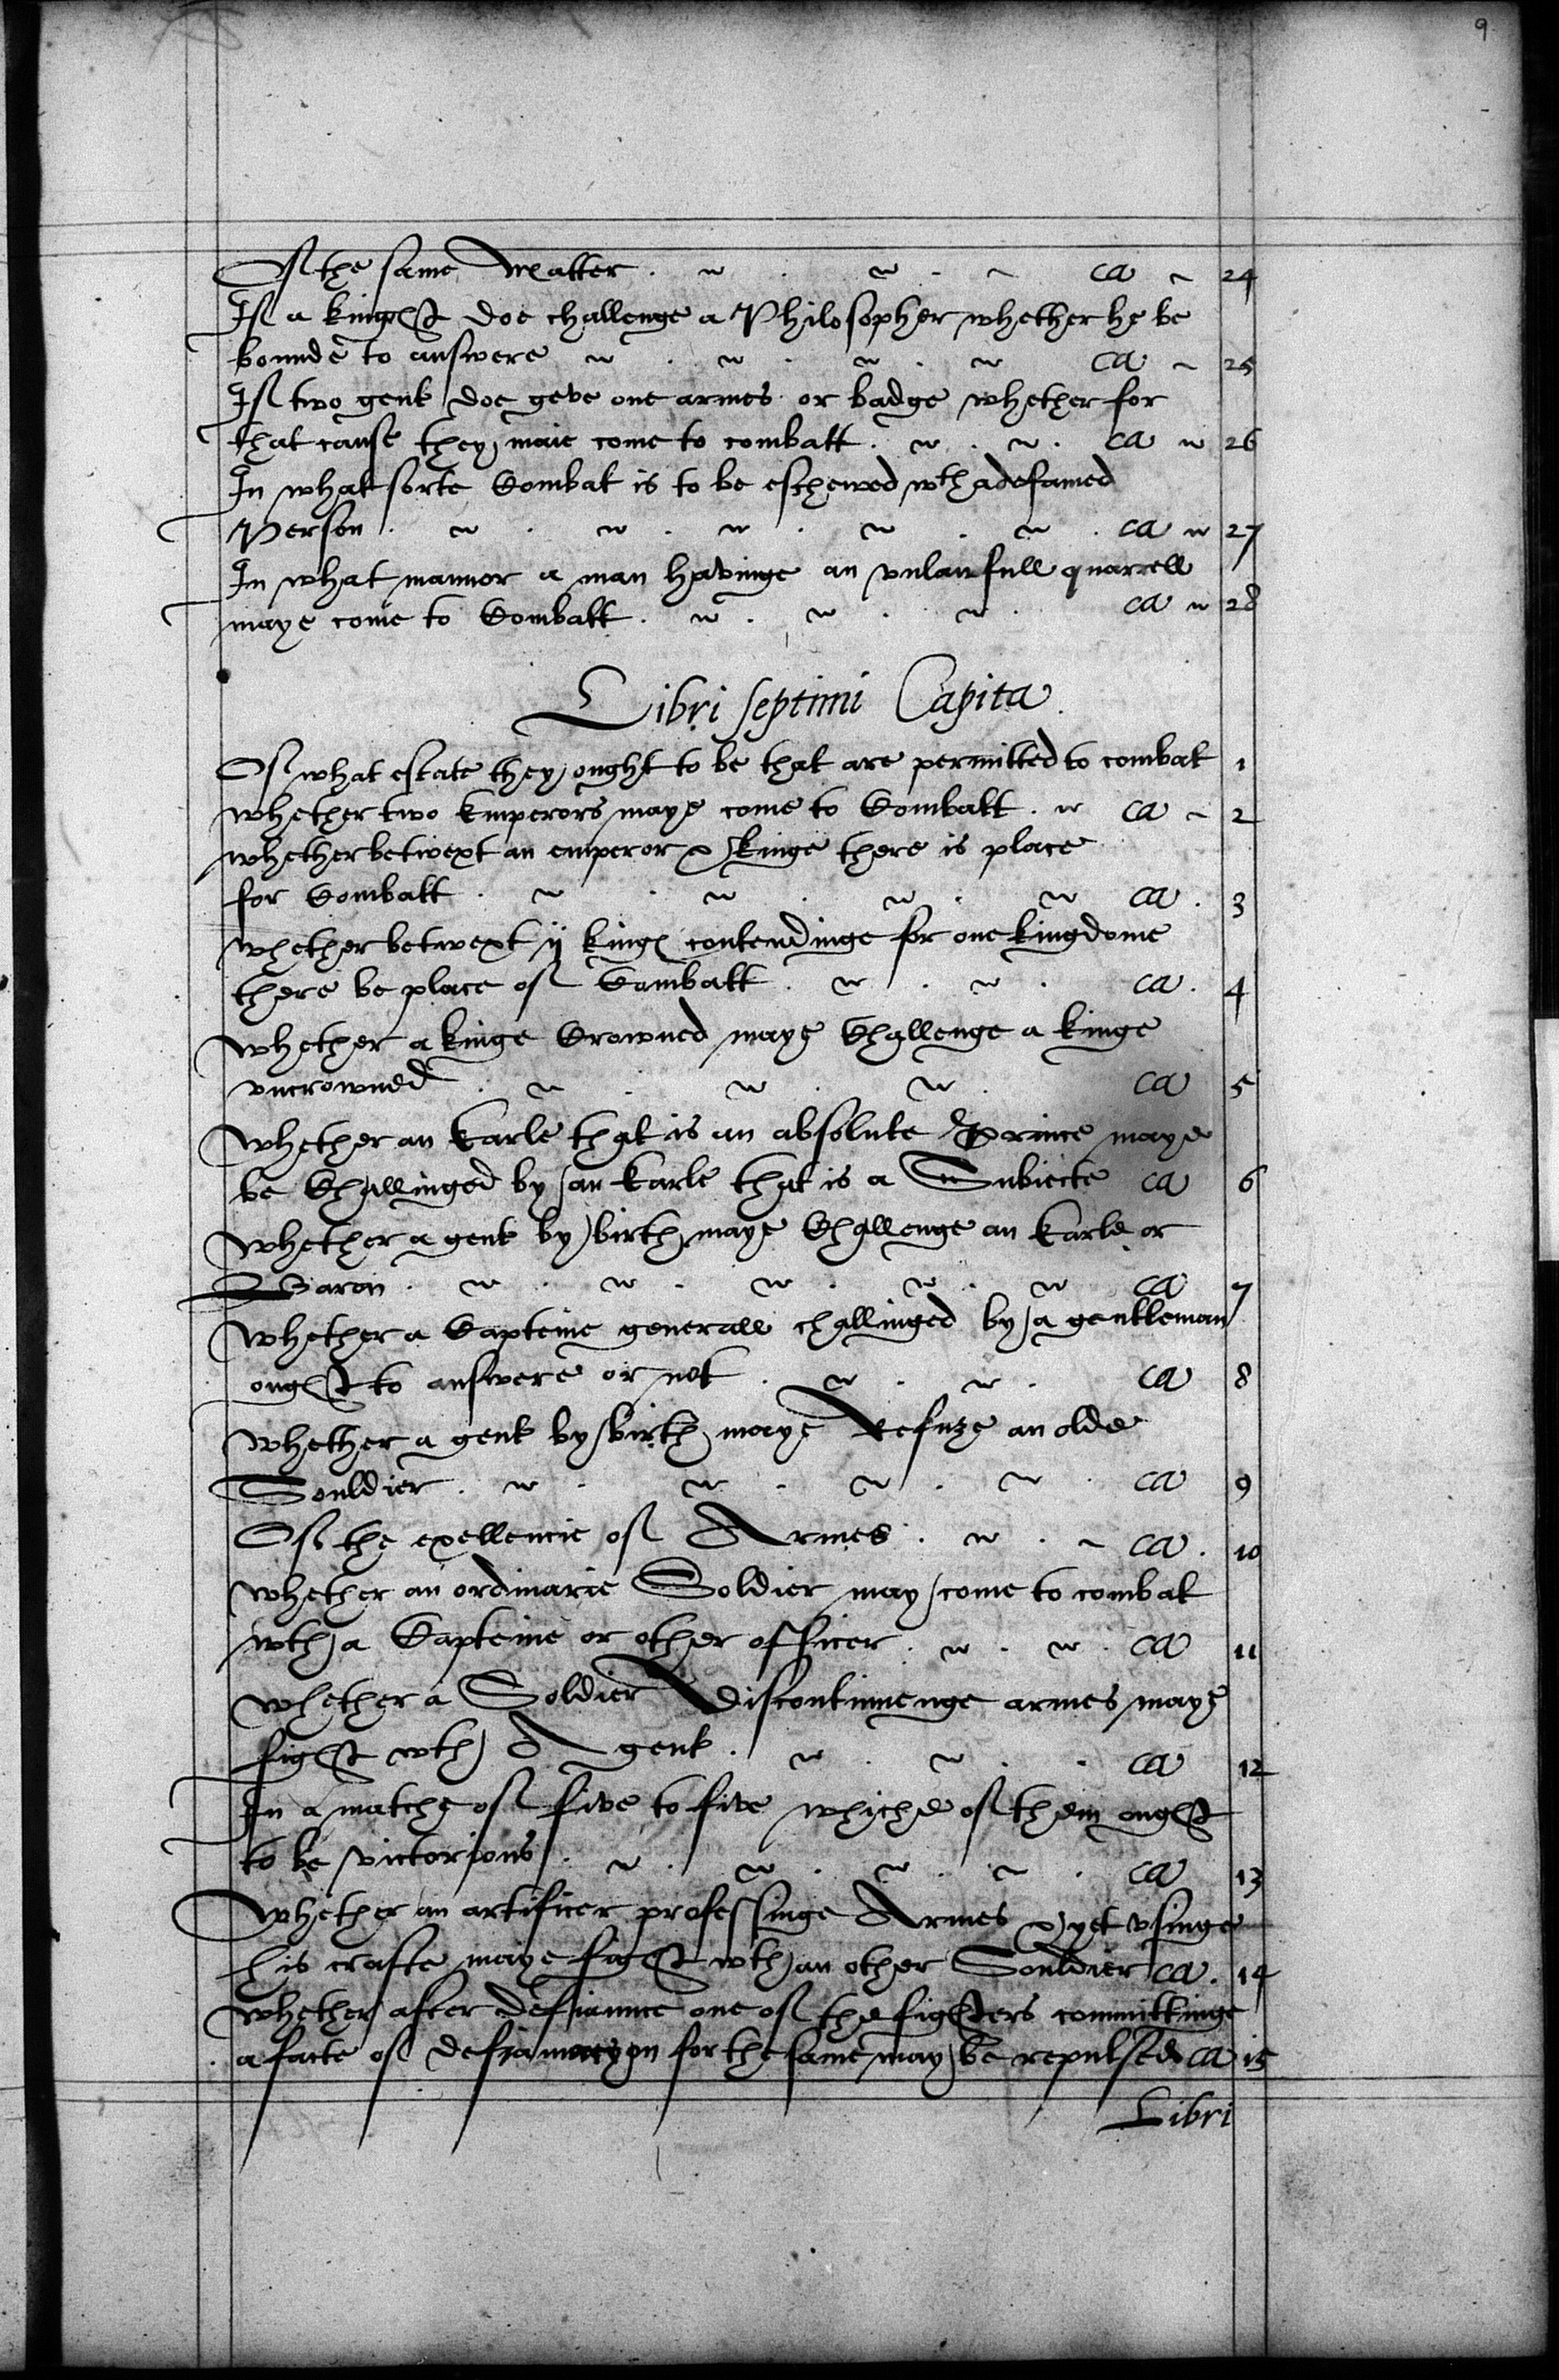 9
Of the same Matter . ~ . ~ . ~ ca ~ 24
If a knight doe challenge a Philosopher whether he be
bounde to answere ~ . ~ . ~ . ~ ca ~ 25
If two gent doe geve one armes or badge whether for
that cause they maie come to combatt . ~ . ~ . ca ~ 26
In what sorte Combat is to be eschewed wth a defamed
Person . ~ . ~ . ~ . ~ . ~ . ca ~ 27
In what mannor a man havinge an vnlawfull quarrell
maye come to Combatt . ~ . ~ . ~ . ca ~ 28
Libri septimi Capita .
Of what estate they ought to be that are permitted to combat 1
whether two Emperors maye come to Combatt . ~ ca ~ 2
whether betwext an emperor & kinge there is place
for Combatt . ~ . ~ . ~ . ~ ca . 3
whether betwext ij kinges contendinge for one kingdome
there be place of Combatt . ~ . ~ . ca . 4
whether a kinge Crowned maye Challenge a kinge
vncrowned . ~ . ~ . ~ . ca 5
whether an Earle that is an absolute Prince maye
be Challinged by an Earle that is a Subiecte ca 6
whether a gent by birth maye Challenge an Earle or
Baron . ~ . ~ . ~ . ~ . ~ ca 7
whether a Capteine generall challinged by a gentleman
ought to answere or not . ~ . ~ . ca 8
whether a gent by birth maye Refuze an olde
Souldier . ~ . ~ . ~ . ~ . ca 9
Of the exellencie of Armes . ~ . ~ ca . 10
whether an ordinarie Soldier may come to combat
wth a Capteine or other officer . ~ . ~ . ca 11
whether a Soldier discontinuenge armes maye
fight wth A gent . ~ . ~ . . ca 12
In a matche of five to five whiche of them ought
to be victorious . ~ . ~ . ~ . ~ . ca 13
Whether an artificer professinge Armes & yet vsinge
his crafte maye fight wth an other Souldier ca . 14
whether after defiaunce one of the fighters committinge
a facte of for the same may be repulsed ca 15
Libri